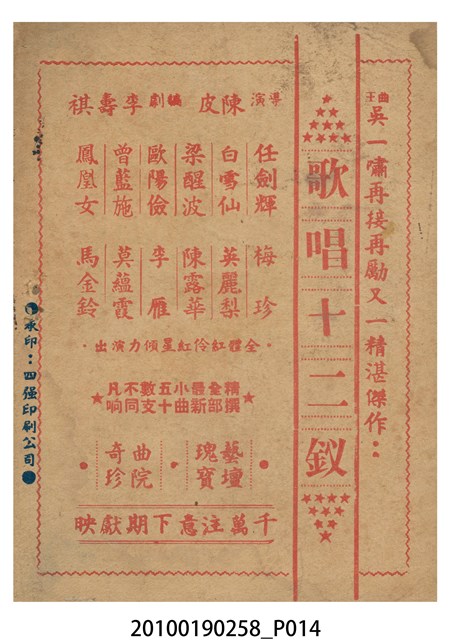 曲王
吳一嘯再接再勵又一精湛傑作：
歌唱十二釵
導演 陳皮 編劇 李壽祺
任劍輝
白雪仙
梁醒波
歐陽儉
曾藍施
鳳凰女
梅珍
英麗梨
陳露華
李雁
莫蘊霞
馬金鈴
·全體紅伶紅星傾力演出·
精撰全部最新小曲五十數支不同凡响
藝壇瑰寶
曲院奇珍
千萬注意下期獻映
承印：四强印刷公司
20100190258_P014